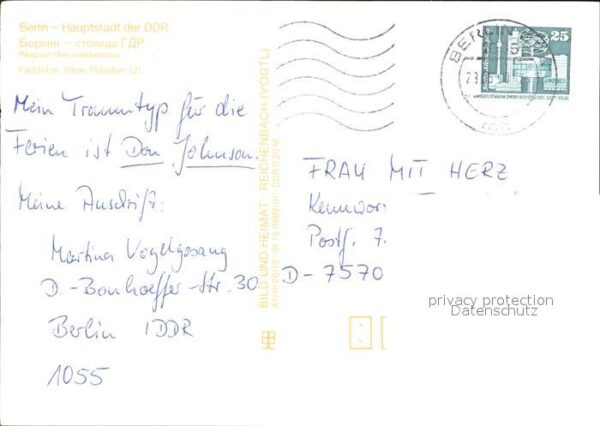 Berlin – Hauptstadt der DDR
Берлин – столица ГДР
Farbfotos: Potsdam (2)
Mein Traumtyp für die
Ferien ist Don Johnson.
Meine Anschrift:
Martina Vogelgesang
D.-Bonhoeffer-Str. 30
Berlin DDR
1055
BILD UND HEIMAT REICHENBACH (VOGTL)
BERLIN
25
FRAU MIT HERZ
Kennwor
Postf. 7.
D-7570
privacy protection
Datenschutz